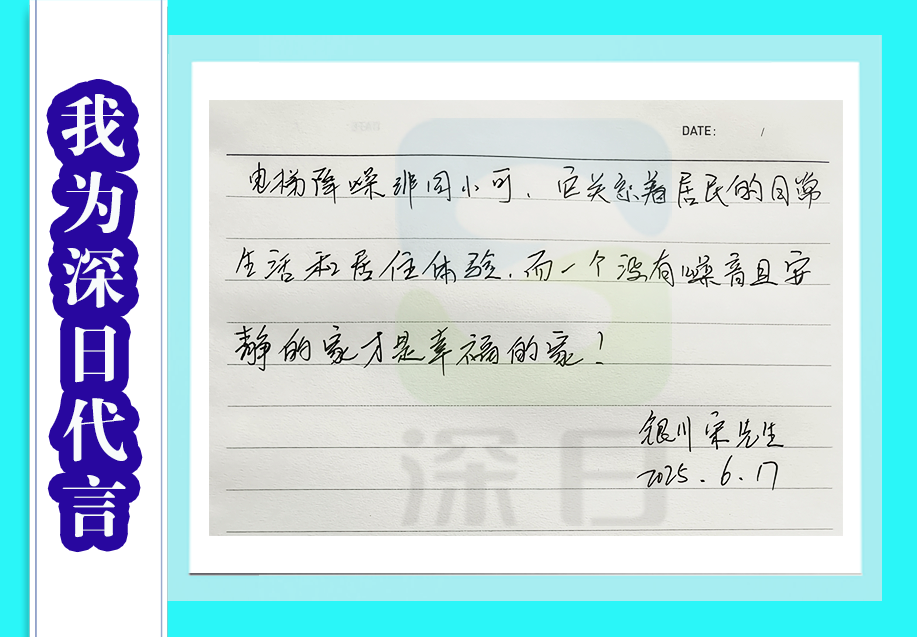 我为深日代言
DATE: /
电梯降噪非同小可，它关系着居民的日常
生活和居住体验，而一个没有噪音且安
静的家才是幸福的家！
银川宋先生
2025.6.17
深日